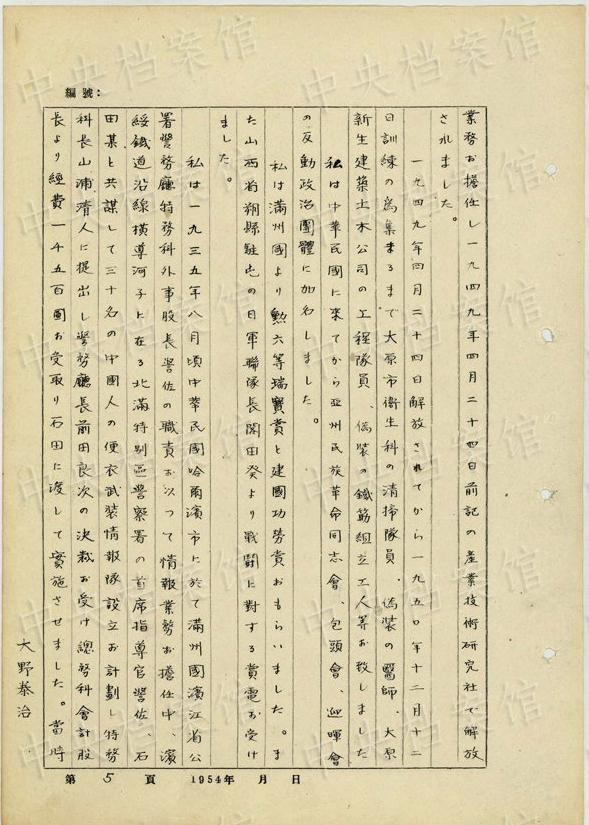 編號：
業務お擔任し一九四九年四月二十四日前記の產業技術研究社で解放
されました。
一九四九年四月二十四日解放されてから一九五〇年十二月十二
日訓練の爲集まるまで大原市衛生科の清掃隊員、偽裝の醫師、大原
新生建築土木公司の工程隊員、偽裝の鐵筋組立工人等お致しました
私は中華民國に來てから亞州民族革命同志會、包頭會、迎暉會
の反動政治團體に加名しました。
私は滿州國より勲六等瑞寶賞と建國功勞賞おもらいました。ま
た山西省朔縣駐屯の日軍聯隊長関田癸より戰闘に對する賞電お受け
ました。
私は一九三五年八月頃中華民國哈爾濱市に於て滿州國濱江省公
署警務廳特務科外事股長警佐の職責お以つて情報業務お擔任中、濱
綏鐵道沿線横導河子に在る北滿特别區警察署の首席指導官警佐、石
田某と共謀して三十名の中國人の便衣武裝情報隊設立お計劃し特務
科長山浦濟人に提出し警務廳長前田良次の決裁お受け總務科會計股
長より經費一千五百圓お受取り石田に渡して實施させました。當時
大野泰治
第 5 頁 1954年 月 日
中央档案馆